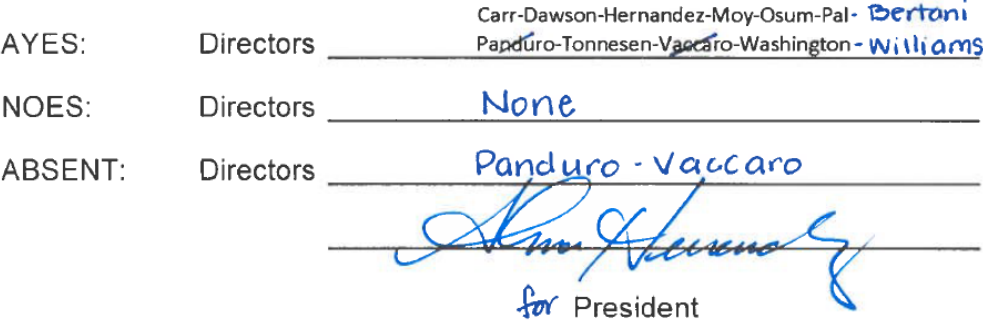 Carr-Dawson-Hernandez-Moy-Osum-Pal- Bertani
AYES: Directors Panduro-Tonnesen-Vaccaro-Washington - Williams
NOES: Directors None
ABSENT: Directors Panduro - Vaccaro
for President